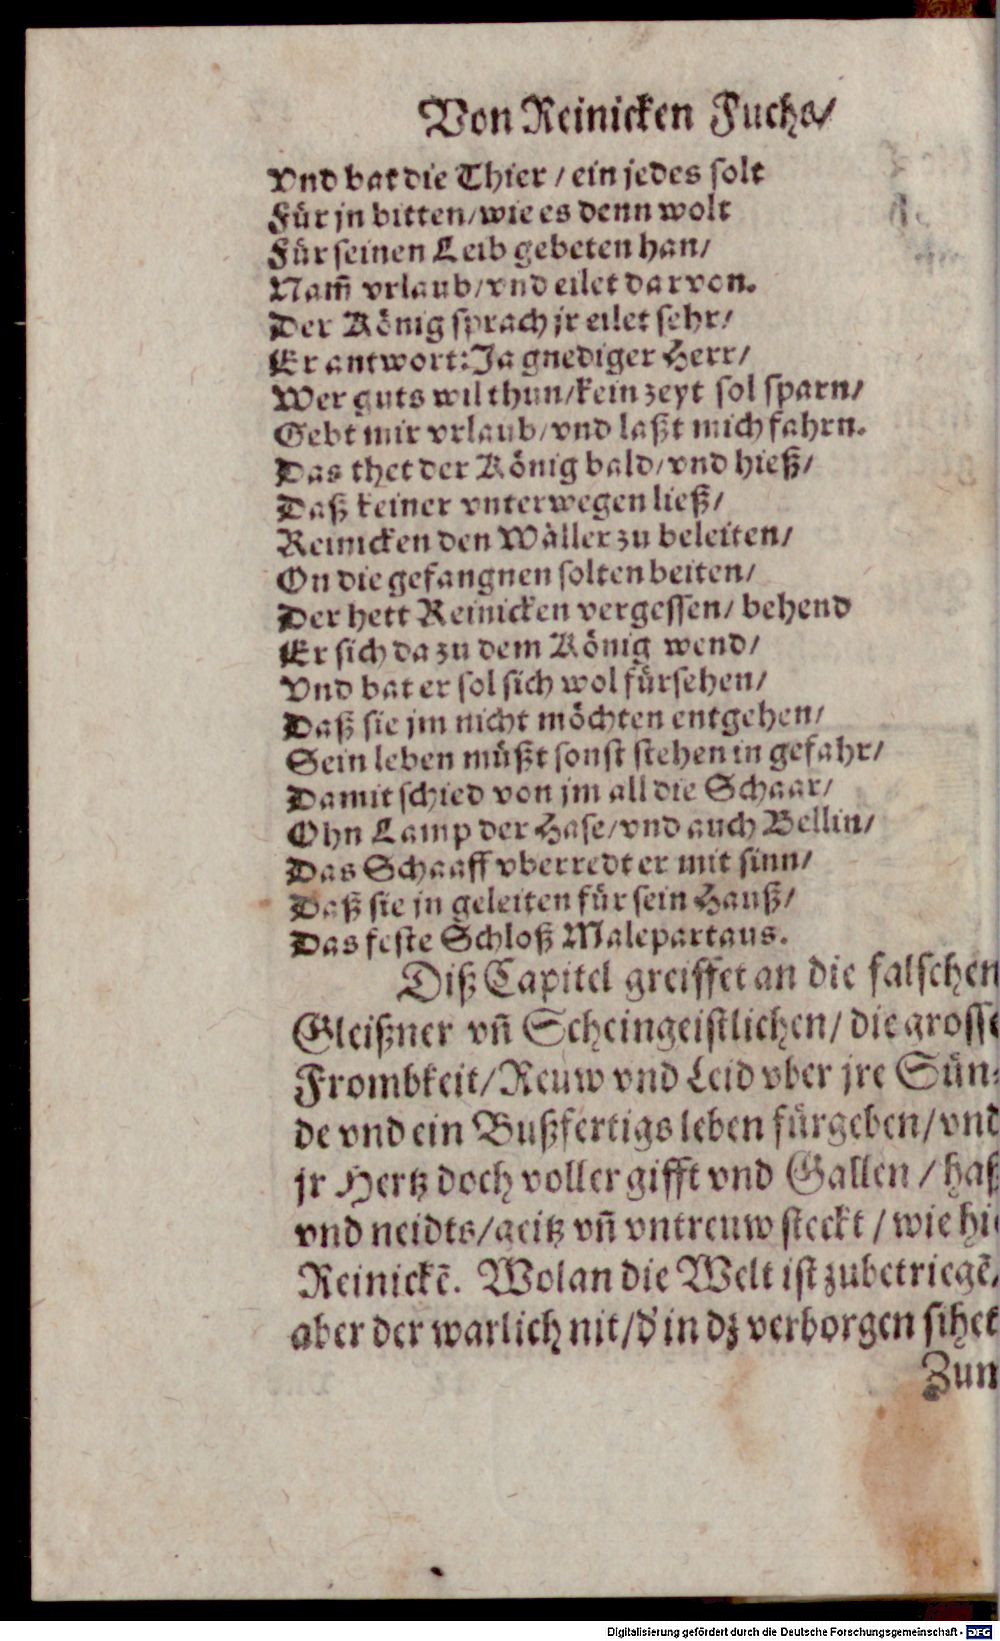 Von Reinicken Fuchs/
Vnd bat die Thier / ein jedes solt
Für jn bitten/wie es denn wolt
Für seinen Leib gebeten han/
Nam̃ vrlaub/vnd eilet darvon.
Der König sprach jr eilet sehr/
Er antwort: Ja gnediger Herr/
Wer guts wil thun/kein zeyt sol sparn/
Gebt mir vrlaub/vnd laßt mich fahrn.
Das thet der König bald/vnd hieß/
Daß keiner vnterwegen ließ/
Reinicken den Wäller zu beleiten/
On die gefangnen solten beiten/
Der hett Reinicken vergessen/ behend
Er sich da zu dem König wend/
Vnd bat er sol sich wol fürsehen/
Daß sie jm nicht möchten entgehen/
Sein leben müßt sonst stehen in gefahr/
Damit schied von jm all die Schaar/
Ohn Lamp der Hase/vnd auch Bellin/
Das Schaaff vberredt er mit sinn/
Daß sie jn geleiten für sein Hauß/
Das feste Schloß Malepartaus.
Diß Capitel greiffet an die falschen
Gleißner vñ Scheingeistlichen/ die grosse
Frombkeit/Reuw vnd Leid vber jre Sün-
de vnd ein Bußfertigs leben fürgeben/vnd
jr Hertz doch voller gifft vnd Gallen / haß
vnd neidts/geitz vñ vntreuw steckt / wie hie
Reinickē. Wolan die Welt ist zubetriegē/
aber der warlich nit/d' in dz verborgen sihet
Zum
Digitalisierung gefördert durch die Deutsche Forschungsgemeinschaft - DFG